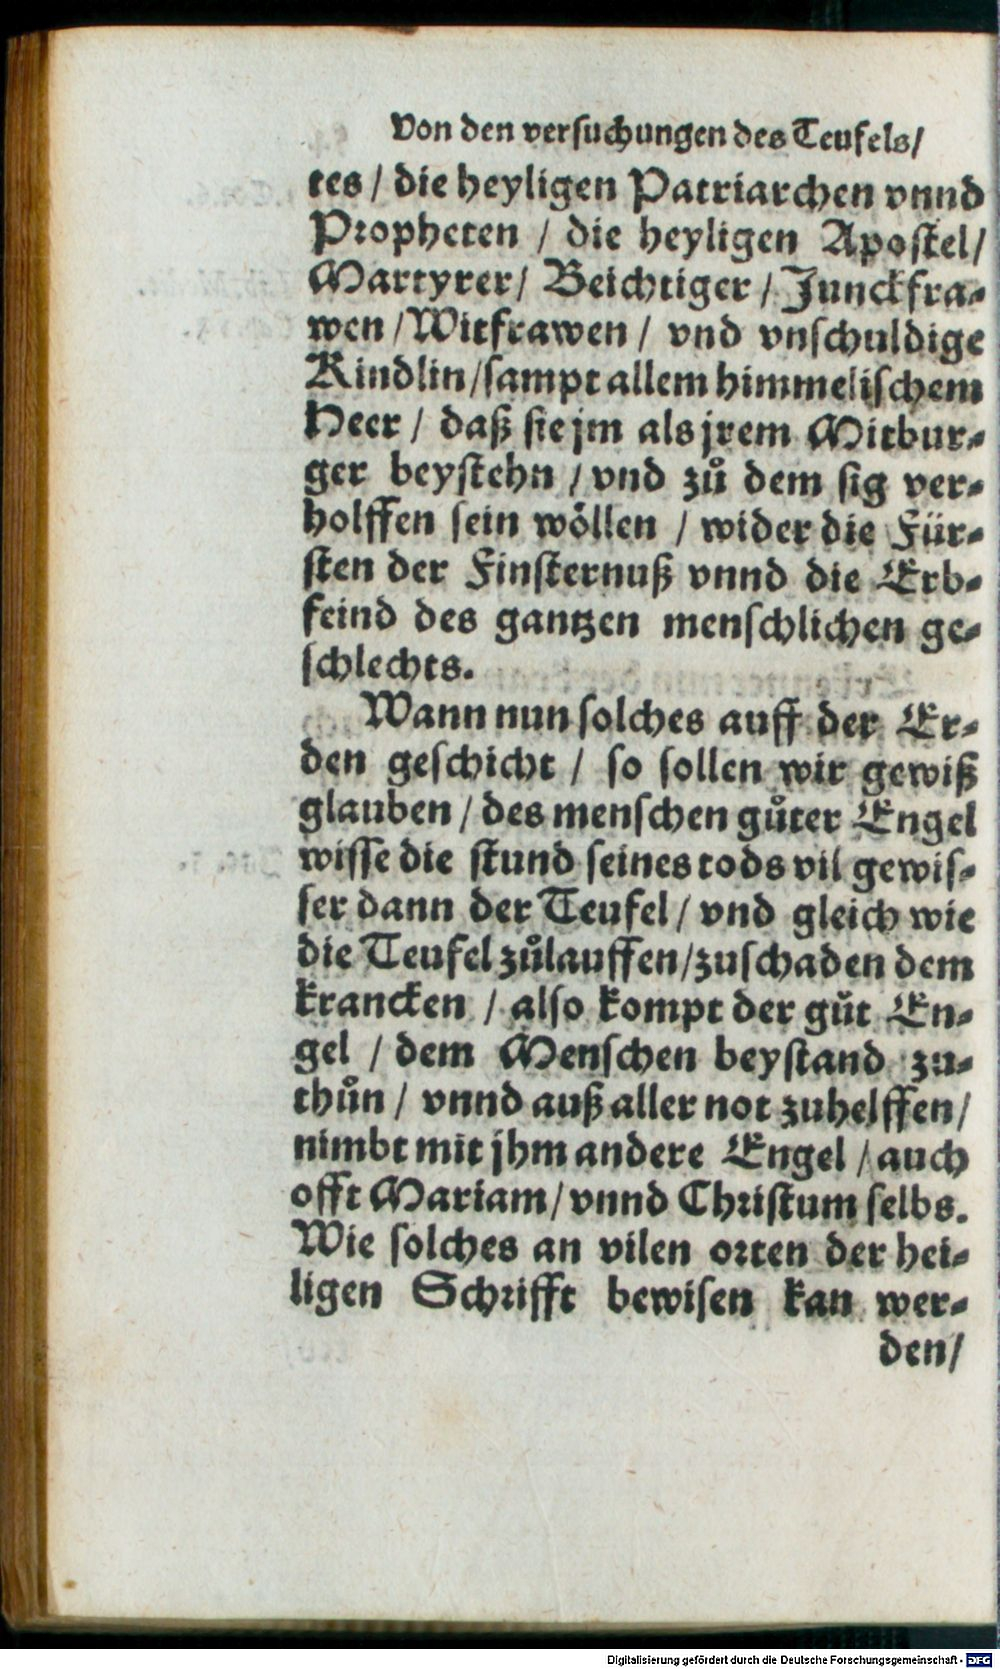 Von den versuchungen des Teufels/
tes / die heyligen Patriarchen vnnd
Propheten / die heyligen Apostel/
Martyrer/ Beichtiger / Junckfra-
wen /Witfrawen / vnd vnschuldige
Kindlin/sampt allem himmelischem
Heer / daß sie jm als jrem Mitbur-
ger beystehn / vnd zů dem sig ver-
holffen sein wöllen / wider die Für-
sten der Finsternuß vnnd die Erb-
feind des gantzen menschlichen ge-
schlechts.
Wann nun solches auff der Er-
den geschicht / so sollen wir gewiß
glauben / des menschen gůter Engel
wisse die stund seines tods vil gewis-
ser dann der Teufel / vnd gleich wie
die Teufel zůlauffen/zuschaden dem
krancken / also kompt der gůt En-
gel / dem Menschen beystand zu-
thůn / vnnd auß aller not zuhelffen/
nimbt mit jhm andere Engel / auch
offt Mariam/ vnnd Christum selbs.
Wie solches an vilen orten der hei-
ligen Schrifft bewisen kan wer-
den/
Digitalisierung gefördert durch die Deutsche Forschungsgemeinschaft - DFG